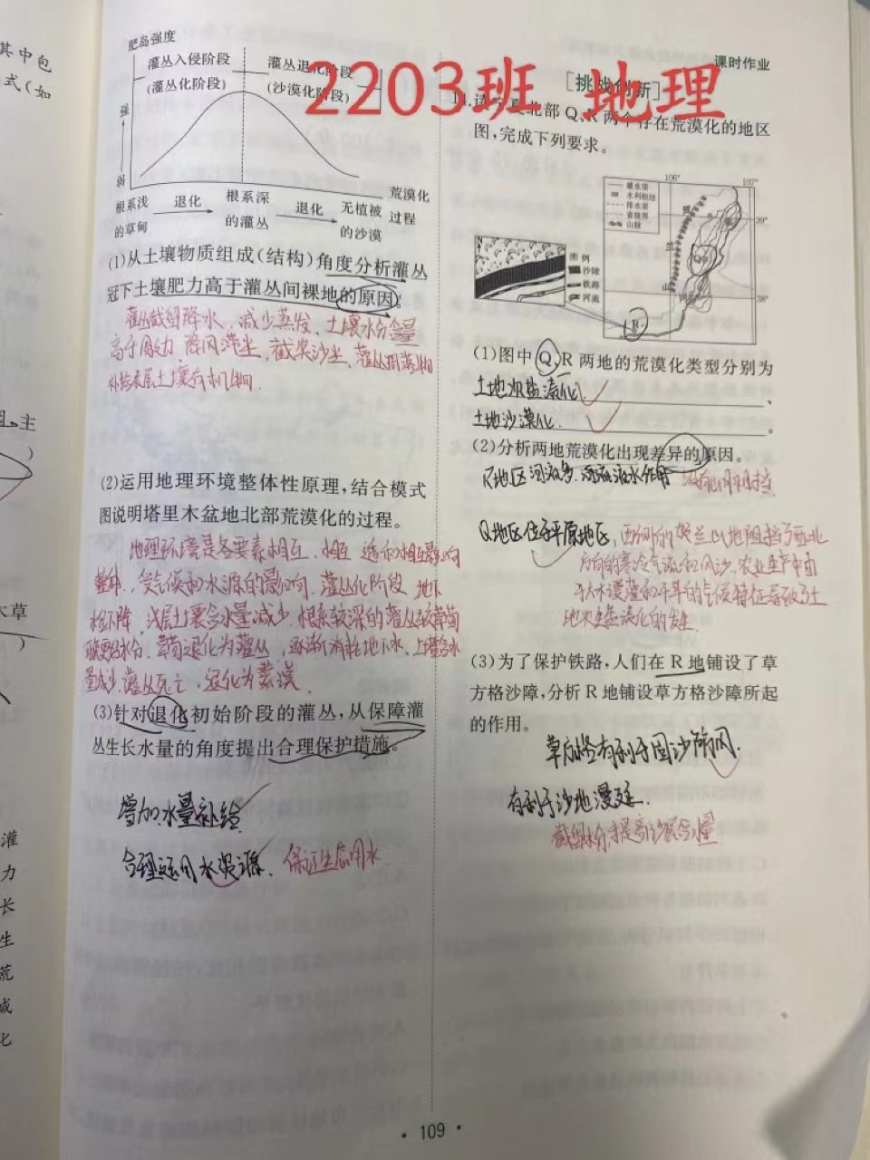 其中包
式(如
主
草
灌
力
长
生
荒
成
化
肥岛强度
灌丛入侵阶段
(灌丛化阶段)
灌丛退化阶段
(沙漠化阶段)
强
弱
根系浅
的草甸
退化
根系深
的灌丛
退化
无植被
的沙漠
荒漠化
过程
(1)从土壤物质组成(结构)角度分析灌丛
冠下土壤肥力高于灌丛间裸地的原因。
灌丛截留降水、减少蒸发、土壤水分含量
高于周边,降风滞尘,截获沙尘、灌丛凋落物
补给表层土壤有机物.
(2)运用地理环境整体性原理,结合模式
图说明塔里木盆地北部荒漠化的过程。
地理环境是各要素相互
受气候和水源的影响.灌丛化阶段,地下
水位下降,浅层土壤含水量减少.根系较深的灌丛较草甸
水分.草甸退化为灌丛,逐渐消耗地下水,土壤含水
量减少.灌丛死亡,退化为荒漠.
(3)针对退化初始阶段的灌丛,从保障灌
丛生长水量的角度提出合理保护措施。
增加水量补给
合理运用水资源. 保证生态用水
2203班 地理
课时作业
[挑战创新]
11.读宁夏北部Q、R两个存在荒漠化的地区
图,完成下列要求。
106°
107°
灌水渠
水利枢纽
排水渠
省级界
山脉
39°
38°
Q
R
图例
沙障
铁路
河流
(1)图中Q、R两地的荒漠化类型分别为
土地次盐渍化、
土地沙漠化.。
(2)分析两地荒漠化出现差异的原因。
R地区河流多.河流流水作用
Q地区位于平原地区,西侧的贺兰山地阻挡了西北
方向的寒冷气流和风沙.农业生产中由
于大水漫灌和干旱的气候特征导致了土
地次生盐渍化的发生
(3)为了保护铁路,人们在R地铺设了草
方格沙障,分析R地铺设草方格沙障所起
的作用。
草方格有利于固沙防风.
有利于沙地漫延.
截留水分,提高沙层含水量
· 109 ·